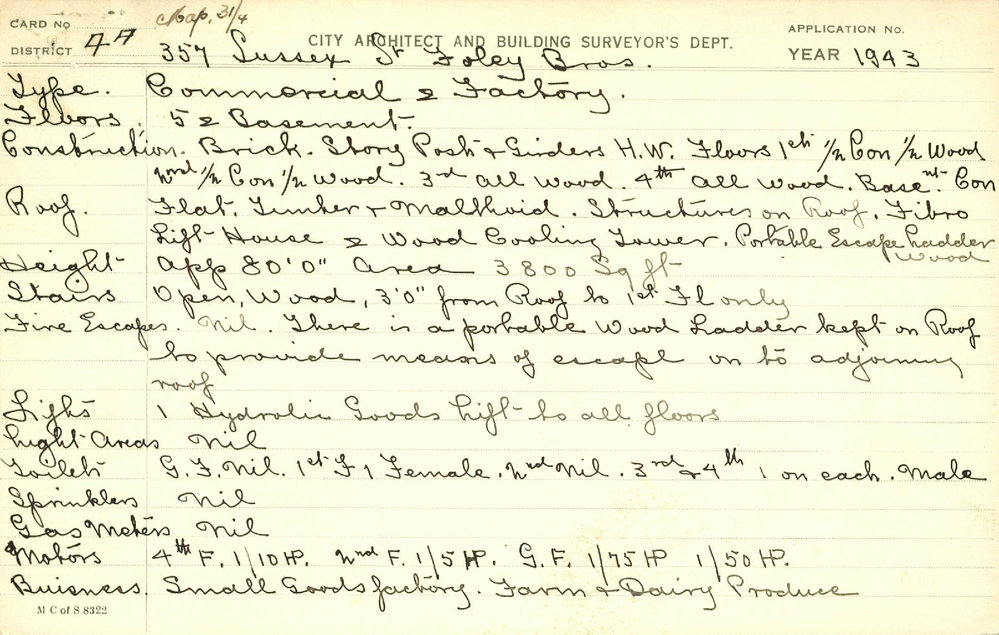 CARD No
Map. 31/4
CITY ARCHITECT AND BUILDING SURVEYOR'S DEPT.
APPLICATION No.
DISTRICT 4A 357 Sussex St Foley Bros.
YEAR 1943
Type. Commercial & Factory.
Floors. 5 & Basement.
Construction. Brick. Story Post & Girders H.W. Floors 1st 1/2 Con 1/2 Wood
2nd 1/2 Con 1/2 Wood. 3rd all Wood. 4th all Wood. Basent. Con
Roof. Flat. Timber & Malthoid. Structures on Roof. Fibro
Lift House & Wood Cooling Tower. Portable Escape Ladder
Wood
Height App 80'0" Area 3800 Sq ft
Stairs Open, Wood, 3'0" from Roof to 1st Fl only
Fire Escapes. Nil. There is a portable Wood Ladder kept on Roof
to provide means of escape on to adjoining
roof
Lifts 1 Hydrolic Goods Lift to all floors
Light Areas Nil
Toilets G.F. Nil. 1st F 1 Female. 2nd Nil. 3rd & 4th 1 on each. Male
Sprinklers Nil
Gas Meters Nil
Motors 4th F. 1/10 HP. 2nd F. 1/5 HP. G.F. 1/75 HP 1/50 HP.
Buisness. Small Goods factory. Farm & Dairy Produce
M C of S 8322